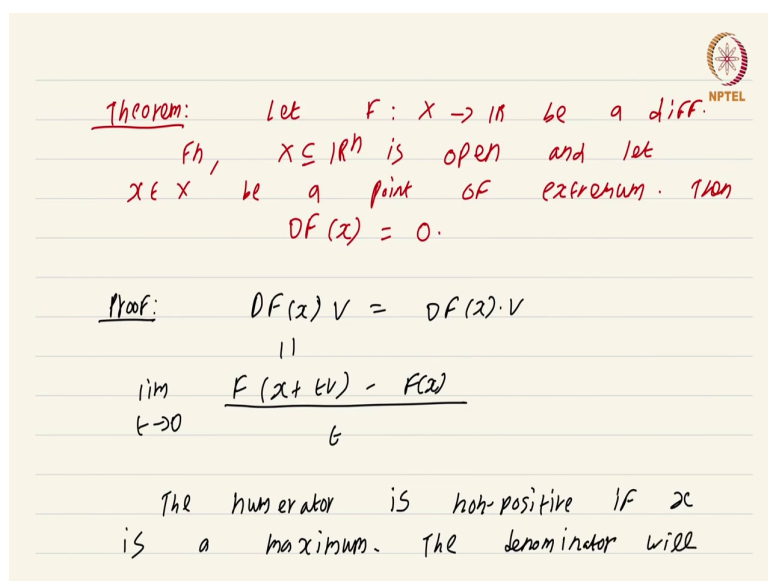 NPTEL
Theorem: Let F : X → ℝ be a diff.
Fn, X ⊆ ℝⁿ is open and let
x ∈ X be a point of extremum. Then
DF(x) = 0.
Proof: DF(x) V = DF(x)·V
||
lim F(x + tV) - F(x)
t→0 t
The numerator is non-positive if x
is a maximum. The denominator will